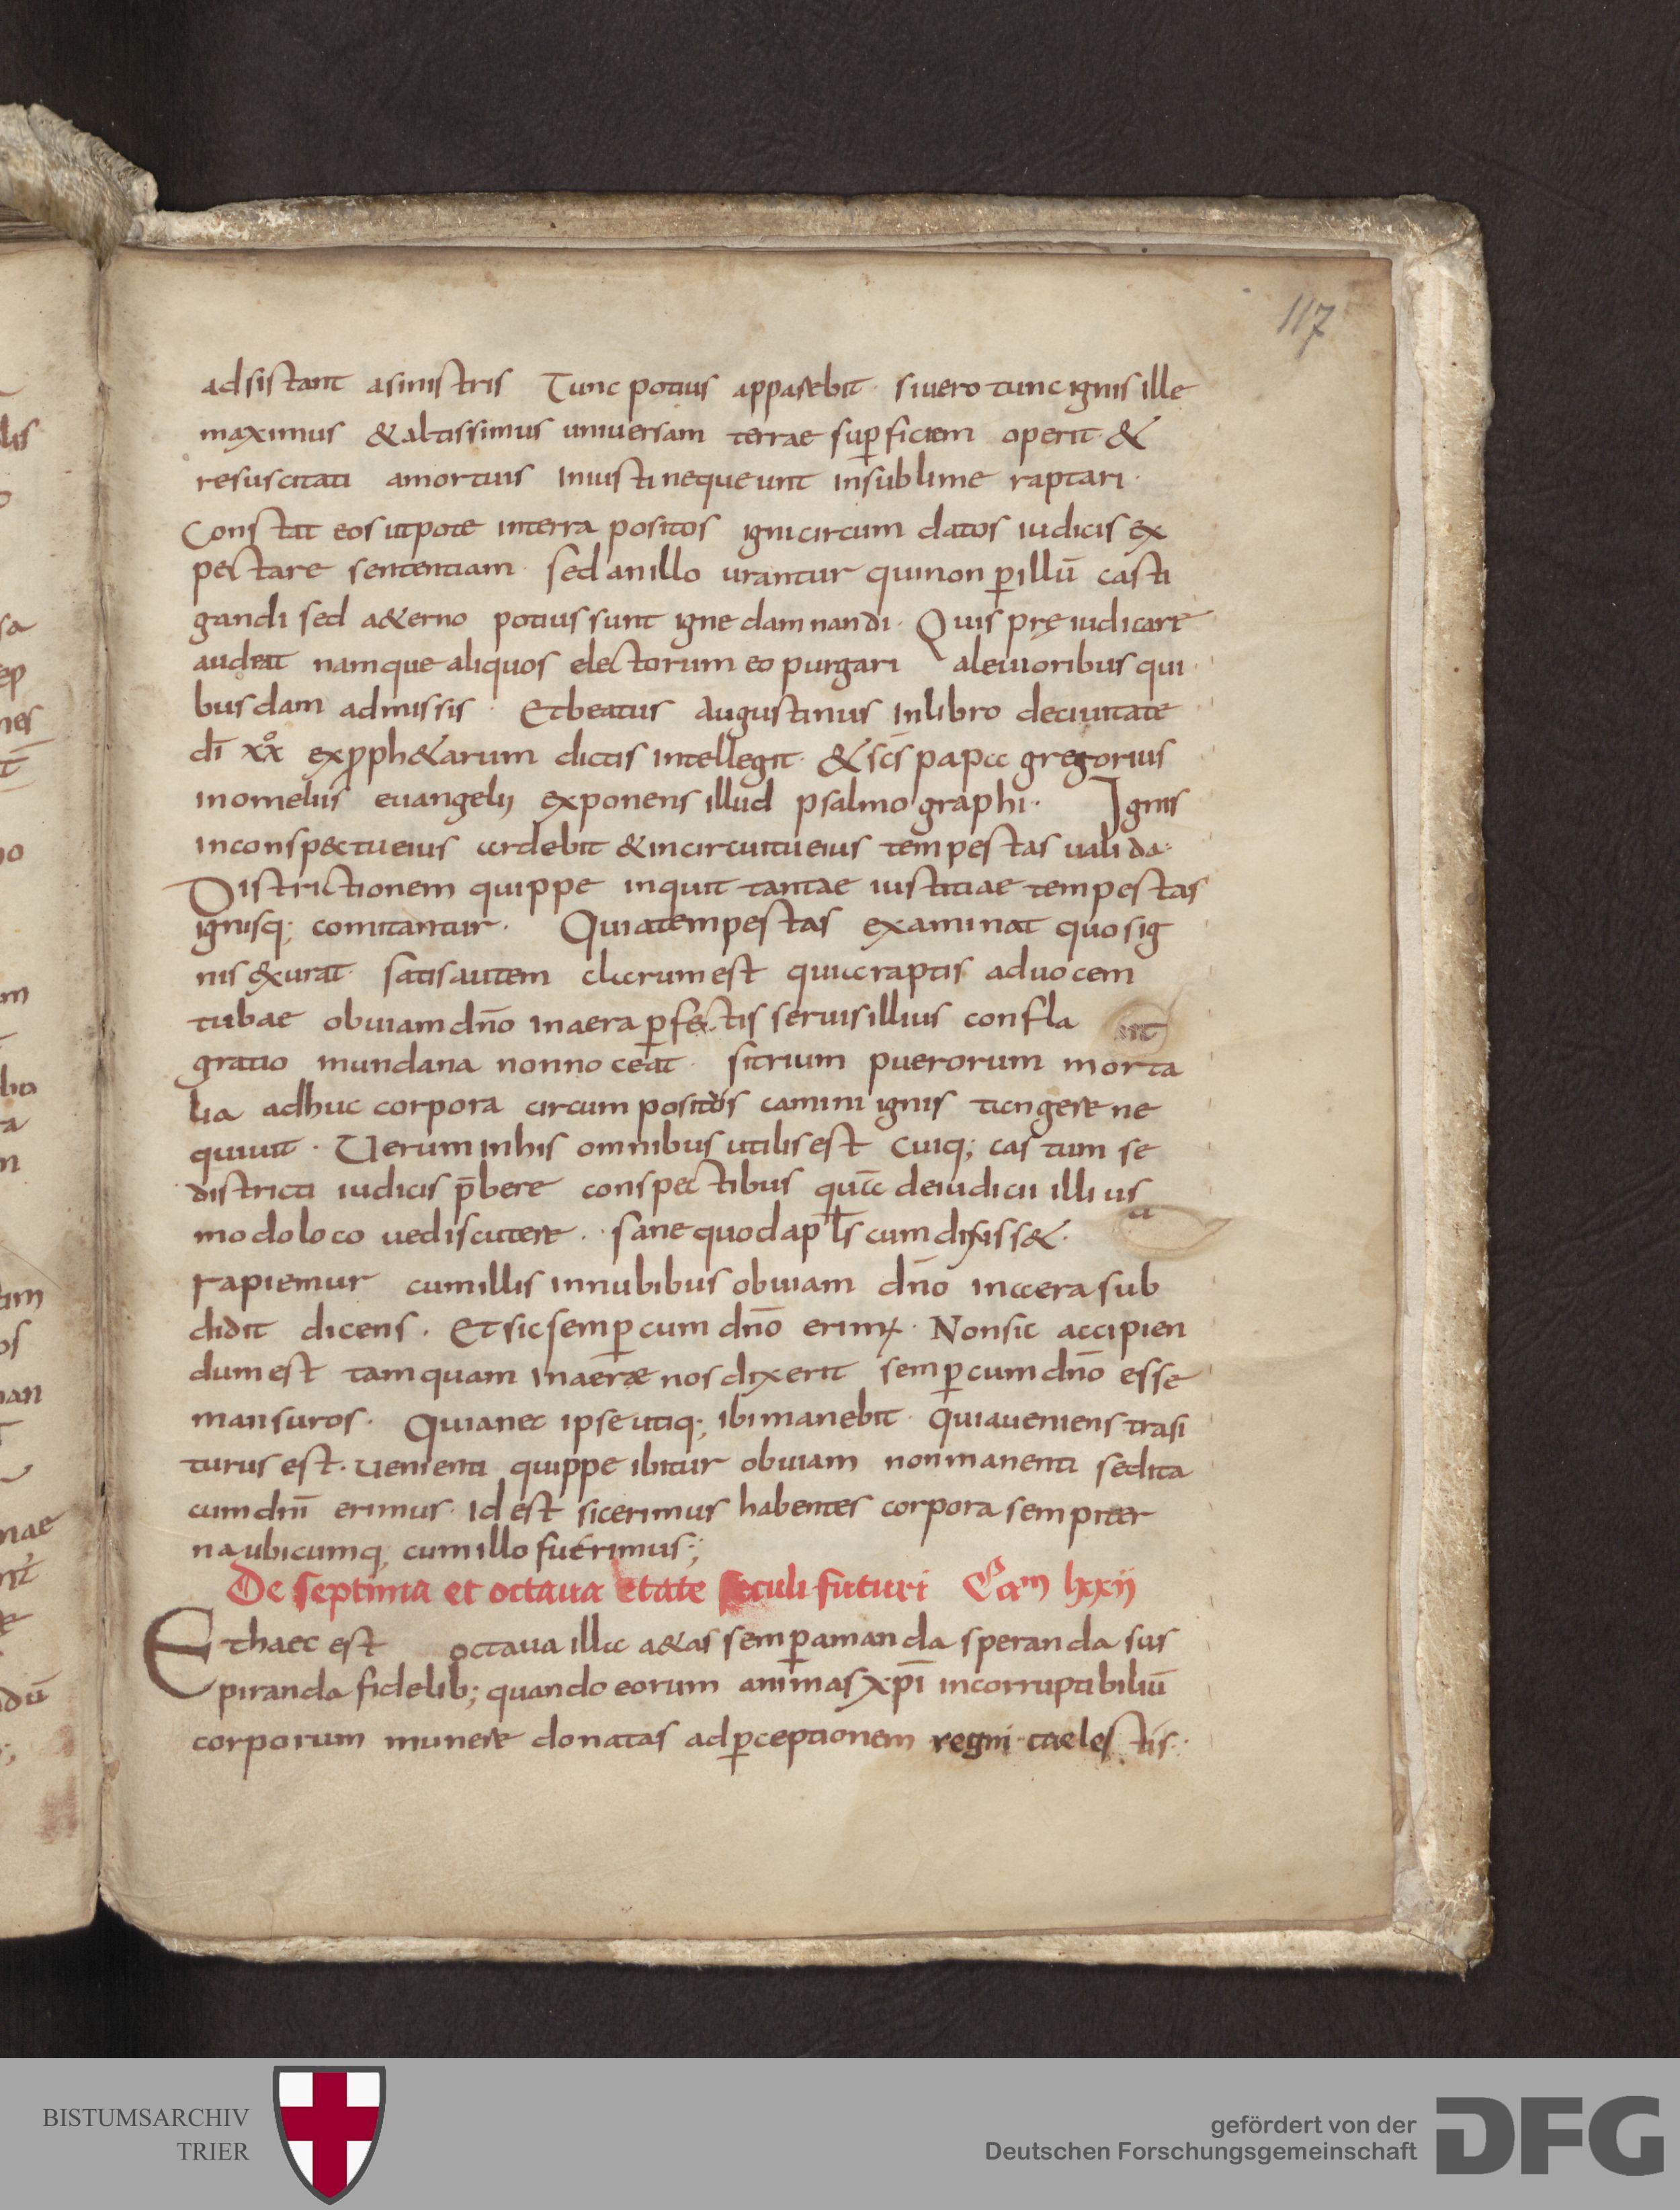 117
adsistant asinistris Tunc potius apparebit · siuero tunc ignis ille
maximus & altissimus uniuersam terrae sup̱ficiem operit · &
resuscitati amortuis iniusti nequeunt insublime raptari ·
Constat eos utpote interra positos igni circum datos iudicis ex
pectare sententiam · sed anillo urantur quinon ꝑillū casti
gandi sed a&erno potius sunt igne damnandi · Quis pręiudicare
audeat namque aliquos electorum eo purgari aleuioribus qui
busdam admissis · Et beatus augustinus inlibro deciuitate
dī xxͦ exꝓph&arum dictis intellegit · & scīs papa gregorius
inomeliis euangelij exponens illud psalmo graphi · Ignis
inconspectu eius ardebit & incircuitu eius tempestas ualida ·
Districtionem quippe inquit tantae iustitiae tempestas
ignisq; comitantur · Quia tempestas examinat quos ig
nis exurat · satis autem clarum est quia raptis aduocem
tubae obuiam dn̄o inaera ꝑfectis seruis illius confla
gratio mundana non noceat · si trium puerorum morta
lia adhuc corpora circum positus camini ignis tangere ne
quiuit · Uerum inhis omnibus utilis est cuiq; castum se
districti iudicis p̄bere conspectibus quā deiudicii illius
modo loco ue discutere · sane quod apl̄s cum dixiss& ·
rapiemur cum illis innubibus obuiam dn̄o inaera sub
didit dicens · Et sic semꝑ cum dn̄o erimꝰ · Non sic accipien
dum est tamquam inaere nos dixerit semꝑ cum dn̄o esse
mansuros · Quia nec ipse utiq; ibi manebit · quia ueniens trasi
turus est · uenienti quippe ibitur obuiam non manenti sed ita
cum dn̄i erimus · id est sic erimus habentes corpora sempiter
na ubicumq; cum illo fuerimus ;
De septima et octaua etate seculi futuri Cam lxxij
Et haec est octaua illa a&as semꝑ amanda speranda sus
piranda fidelib; quando eorum animas xp̄i incorruptibiliū
corporum munere donatas adꝑceptionem regni caelestis ·
BISTUMSARCHIV
TRIER
gefördert von der
Deutschen Forschungsgemeinschaft
DFG